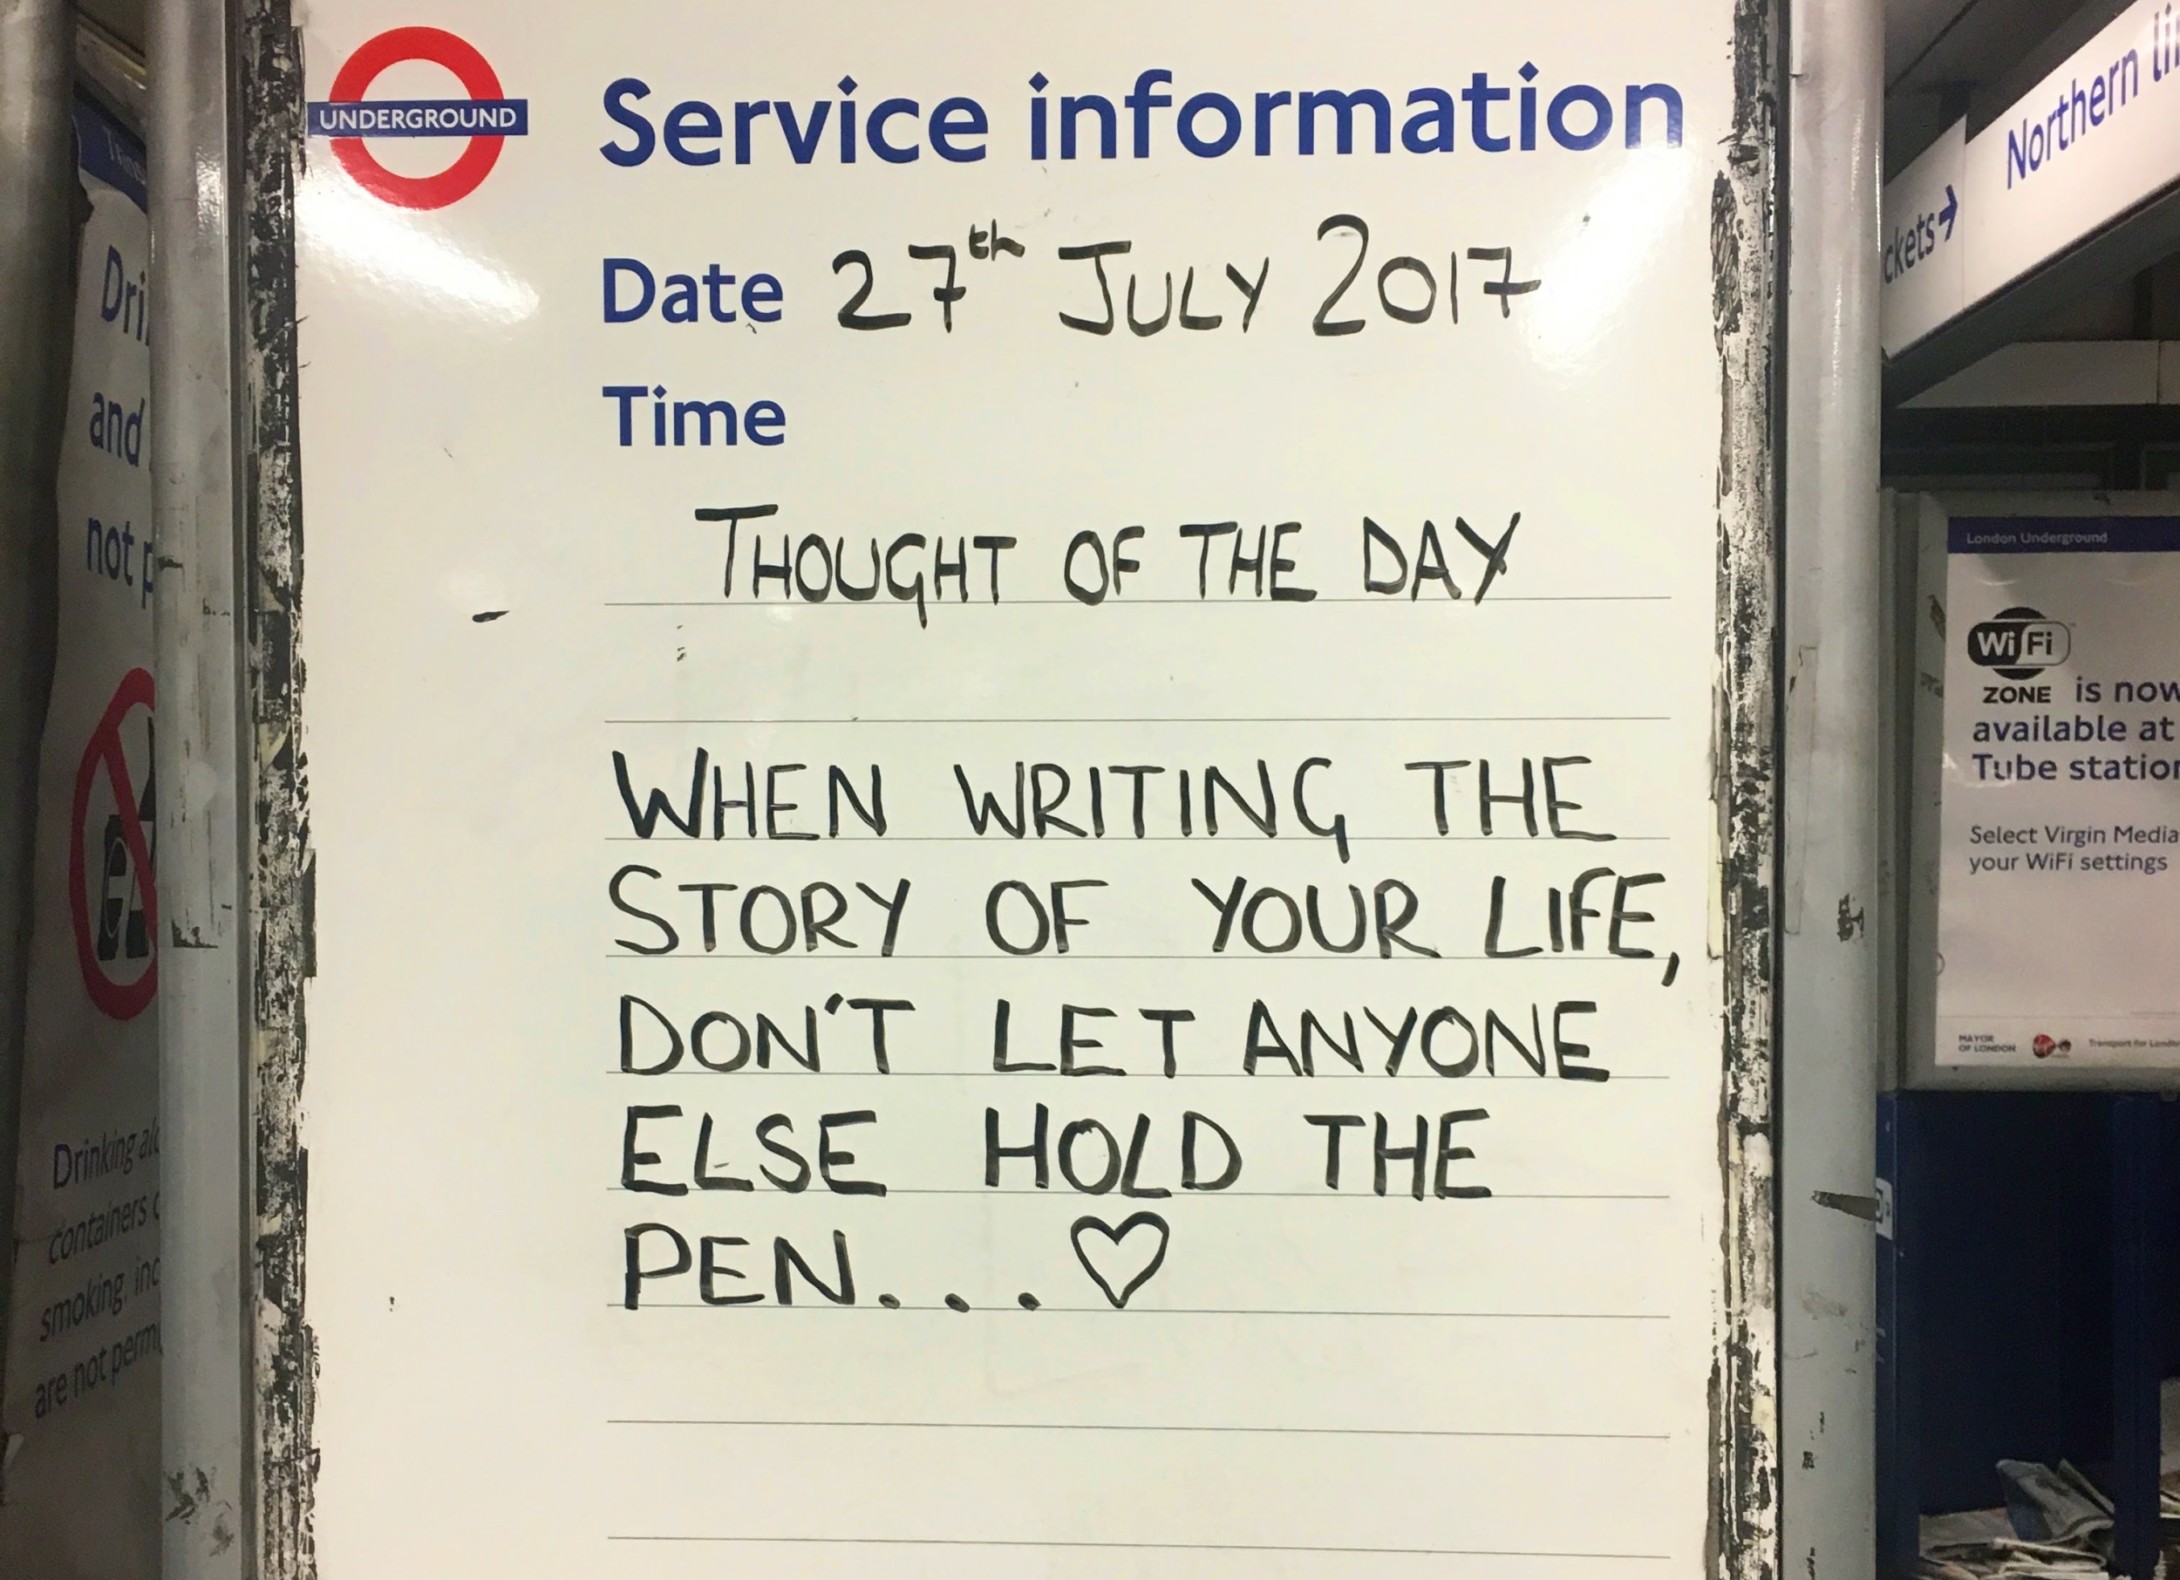 UNDERGROUND
Service information
Date 27th JULY 2017
Time
THOUGHT OF THE DAY
WHEN WRITING THE
STORY OF YOUR LIFE,
DON'T LET ANYONE
ELSE HOLD THE
PEN...♡
and
not
Drinking
containers
smoking,
are not
ckets→
Northern
London Underground
WiFi
ZONE is now
available at
Tube station
Select Virgin Media
your WiFi settings
MAYOR
OF LONDON
Transport for London